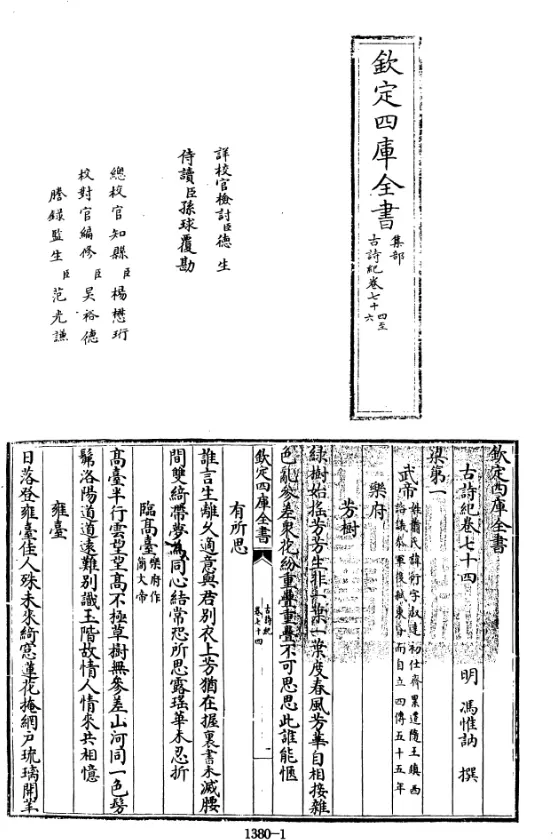 欽定四庫全書
集部
古詩紀卷七十四至
六
詳校官檢討臣德生
侍讀臣孫球覆勘
總校官知縣臣楊懋珩
校對官編修臣吳裕德
謄錄監生臣范光謙
欽定四庫全書
古詩紀卷七十四
明 馮惟訥 撰
梁第一
武帝
姓蕭氏諱衍字叔達初仕齊累遷隨王鎮西
諮議參軍後
東
而自立四傳五十五年
樂府
芳樹
綠樹始搖芳芳生非一葉一葉度春風芳華自相接雜
色亂參差衆花紛重疊重疊不可思思此誰能愜
欽定四庫全書
古詩紀
卷七十四
一
有所思
誰言生離久適意與君別衣上芳猶在握裏書未滅腰
間雙綺帶夢為同心結常恐所思露瑤華未忍折
臨高臺
樂府作
簡文帝
高臺半行雲望望高不極草樹無參差山河同一色髣
髴洛陽道道遠難別識玉階故情人情來共相憶
雍臺
日落登雍臺佳人殊未來綺窓蓮花掩網戶琉璃開羊
1380-1